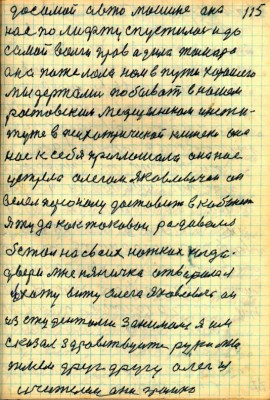 до самой авто машине она 115
нас по лифту спустилась и до
самой волги провадила тамара
она пожелала нам в путь хорошего
мы держали побывать в нашем
ростовским медицынском инсти-
туте в психотрической клинеке она
нас к себя приглошала она нас
олегом Яковлевичом он
велел персоналу доставить в кабинет
я туда как таковой
на своих ножках когда
двери мне няничка отварила
вхожу вижу олега Яковлевича он
из студентами занимался я им
сказал здравствуйте руки
друг другу олег
они громко